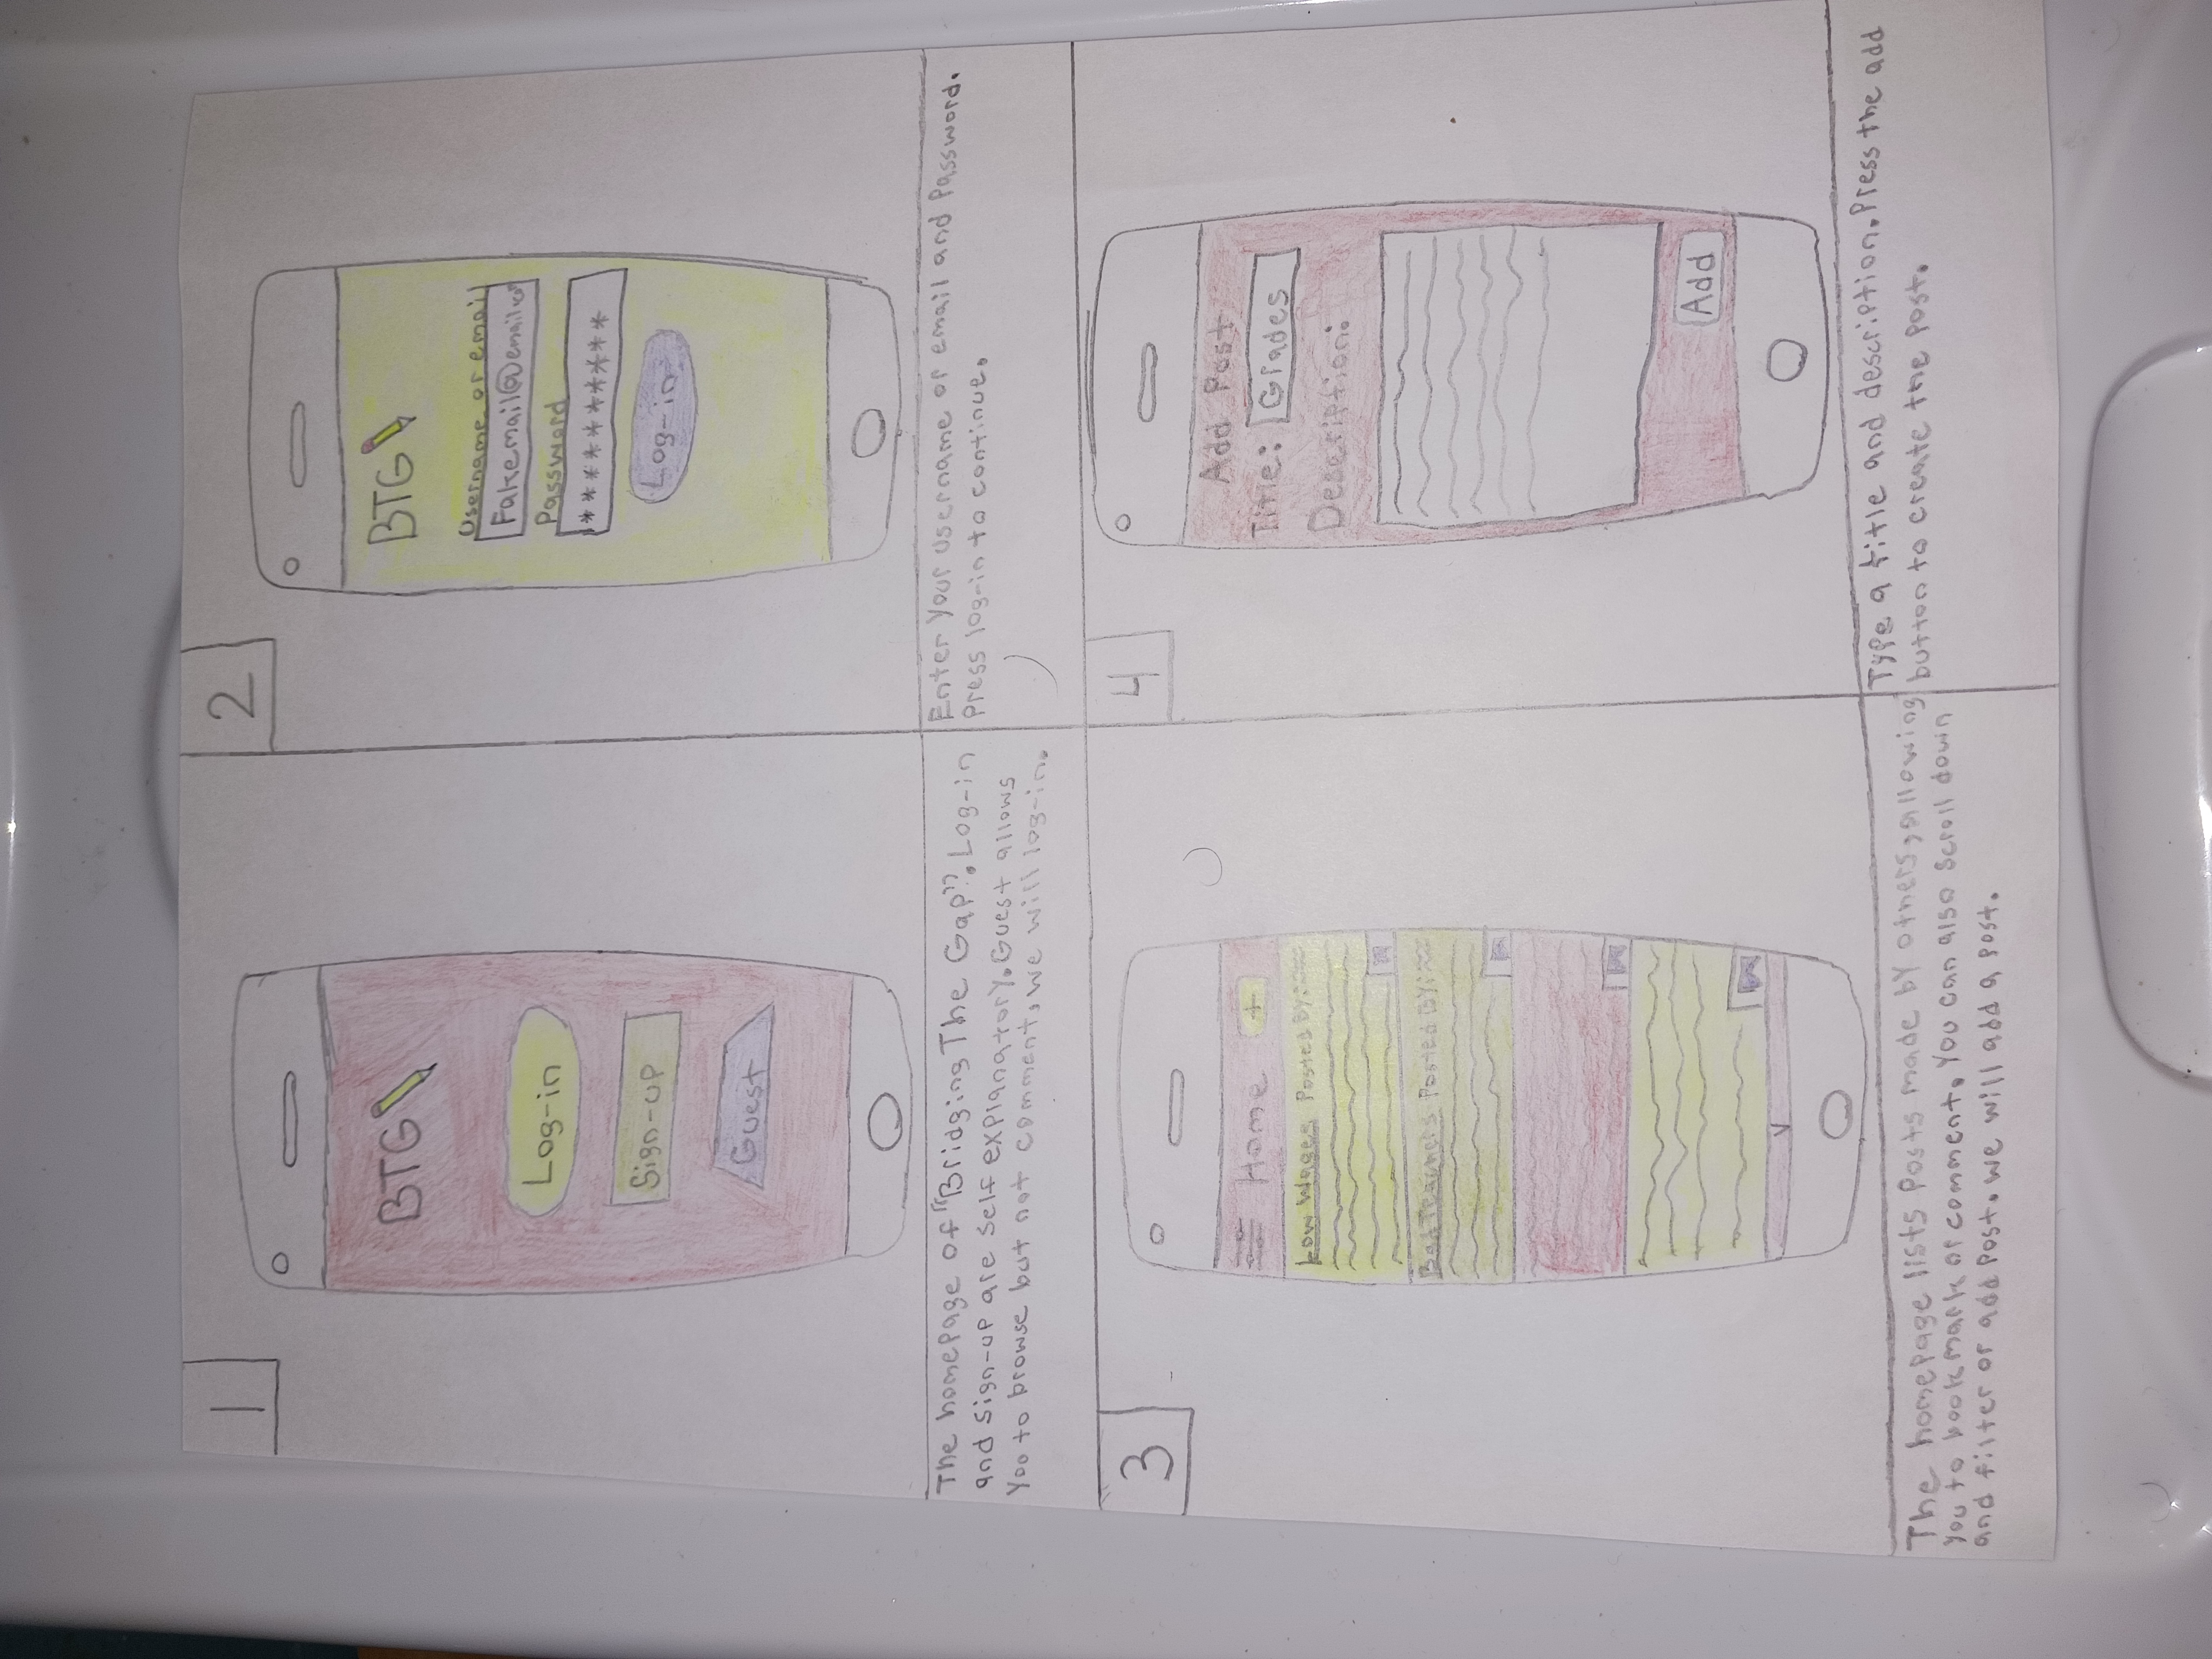 1
BTG
Log-in
Sign-up
Guest
The homepage of "Bridging The Gap". Log-in
and Sign-up are self explanatory. Guest allows
you to browse but not comment, we will log-in.
2
BTG
Username or email
Fakemail@email.co
Password
**********
Log-in
Enter your username or email and password.
Press log-in to continue.
3
Home +
Low Wages Posted By:
Bad Teachers Posted By:
The homepage lists posts made by others, allowing
you to bookmark or comment. You can also scroll down
and filter or add post. we will add a post.
4
Add Post
Title: Grades
Description:
Add
Type a title and description. Press the add
button to create the post.